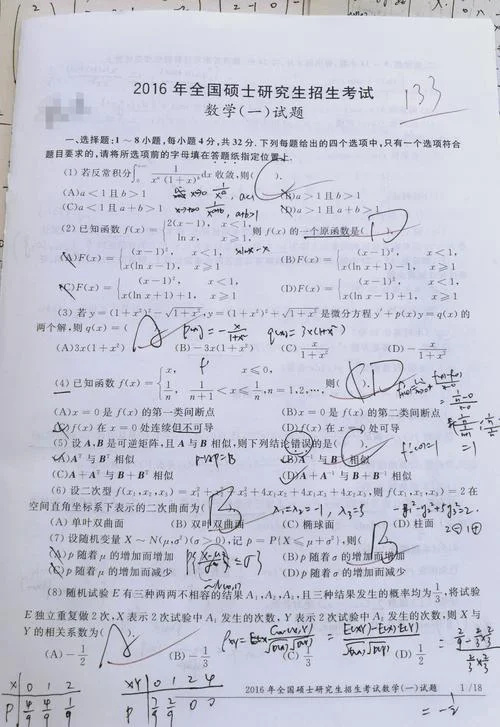 2016 年全国硕士研究生招生考试
133
数学(一)试题
一、选择题:1～8 小题,每小题 4 分,共 32 分. 下列每题给出的四个选项中,只有一个选项符合
题目要求的,请将所选项前的字母填在答题纸指定位置上.
(1) 若反常积分∫₀^{+∞} 1/(x^a(1+x)^b) dx 收敛,则( C
(A)a < 1 且 b > 1 (B)a > 1 且 b > 1
(C)a < 1 且 a + b > 1 a+b>1 (D)a > 1 且 a + b > 1
(2) 已知函数 f(x) = { 2(x-1), x < 1, ln x, x ≥ 1, 则 f(x) 的一个原函数是( D
(A)F(x) = { (x-1)², x < 1, x(ln x-1), x ≥ 1 (B)F(x) = { (x-1)², x < 1, x(ln x+1)-1, x ≥ 1
(C)F(x) = { (x-1)², x < 1, x(ln x+1)+1, x ≥ 1 (D)F(x) = { (x-1)², x < 1, x(ln x-1)+1, x ≥ 1
(3) 若 y = (1+x²)² - √(1+x²), y = (1+x²)² + √(1+x²) 是微分方程 y' + p(x)y = q(x) 的
两个解,则 q(x) = ( A
(A)3x(1+x²) (B)-3x(1+x²) (C) x/(1+x²) (D) - x/(1+x²)
(4) 已知函数 f(x) = { x, x ≤ 0, 1/n, 1/(n+1) < x ≤ 1/n, n = 1,2,…, 则( D
(A)x = 0 是 f(x) 的第一类间断点 (B)x = 0 是 f(x) 的第二类间断点
(C)f(x) 在 x = 0 处连续但不可导 (D)f(x) 在 x = 0 处可导
(5) 设 A,B 是可逆矩阵,且 A 与 B 相似,则下列结论错误的是( C
(A)Aᵀ 与 Bᵀ 相似 P⁻¹AP=B (B)A⁻¹ 与 B⁻¹ 相似
(C)A + Aᵀ 与 B + Bᵀ 相似 (D)A + A⁻¹ 与 B + B⁻¹ 相似
(6) 设二次型 f(x₁,x₂,x₃) = x₁² + x₂² + x₃² + 4x₁x₂ + 4x₁x₃ + 4x₂x₃,则 f(x₁,x₂,x₃) = 2 在
空间直角坐标系下表示的二次曲面为( B λ₁=λ₂=-1, λ₃=5
(A) 单叶双曲面 (B) 双叶双曲面 (C) 椭球面 (D) 柱面
(7) 设随机变量 X ~ N(μ,σ²)(σ > 0),记 p = P{X ≤ μ + σ²},则( B
(A)p 随着 μ 的增加而增加 (B)p 随着 σ 的增加而增加
(C)p 随着 μ 的增加而减少 (D)p 随着 σ 的增加而减少
(8) 随机试验 E 有三种两两不相容的结果 A₁,A₂,A₃,且三种结果发生的概率均为 1/3,将试验
E 独立重复做 2 次,X 表示 2 次试验中 A₁ 发生的次数,Y 表示 2 次试验中 A₂ 发生的次数,则 X 与
Y 的相关系数为( A
(A) - 1/2 (B) - 1/3 (C) 1/3 (D) 1/2
X 0 1 2
P 4/9 4/9 1/9
XY 0 1 2 4
P 7/9 2/9 0 0
= -1/2
2016 年全国硕士研究生招生考试数学(一)试题 1/18